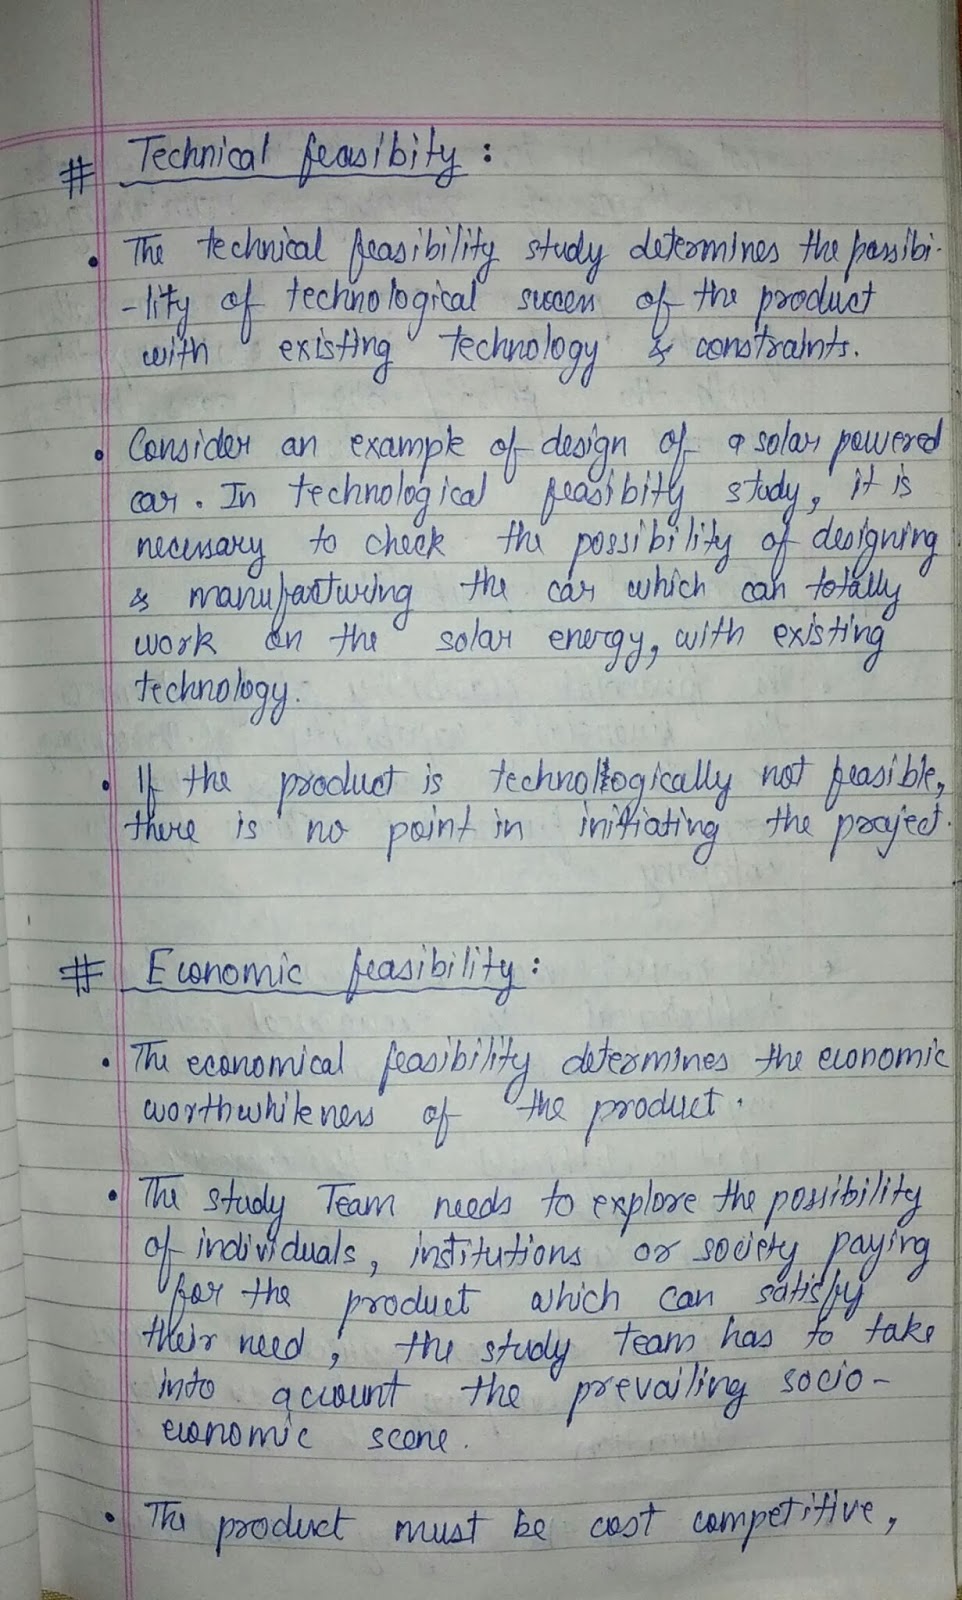 # Technical feasibity :
• The technical feasibility study determines the possibi-
-lity of technological success of the product
with existing technology & constraints.
• Consider an example of design of a solar powered
car. In technological feasibity study, it is
necessary to check the possibility of designing
& manufacturing the car which can totally
work on the solar energy, with existing
technology.
• If the product is technologically not feasible,
there is no point in initiating the project.
# Economic feasibility :
• The economical feasibility determines the economic
worthwhileness of the product.
• The study Team needs to explore the possibility
of individuals, institutions or society paying
for the product which can satisfy
their need ; the study team has to take
into account the prevailing socio-
economic scene.
• The product must be cost competitive,